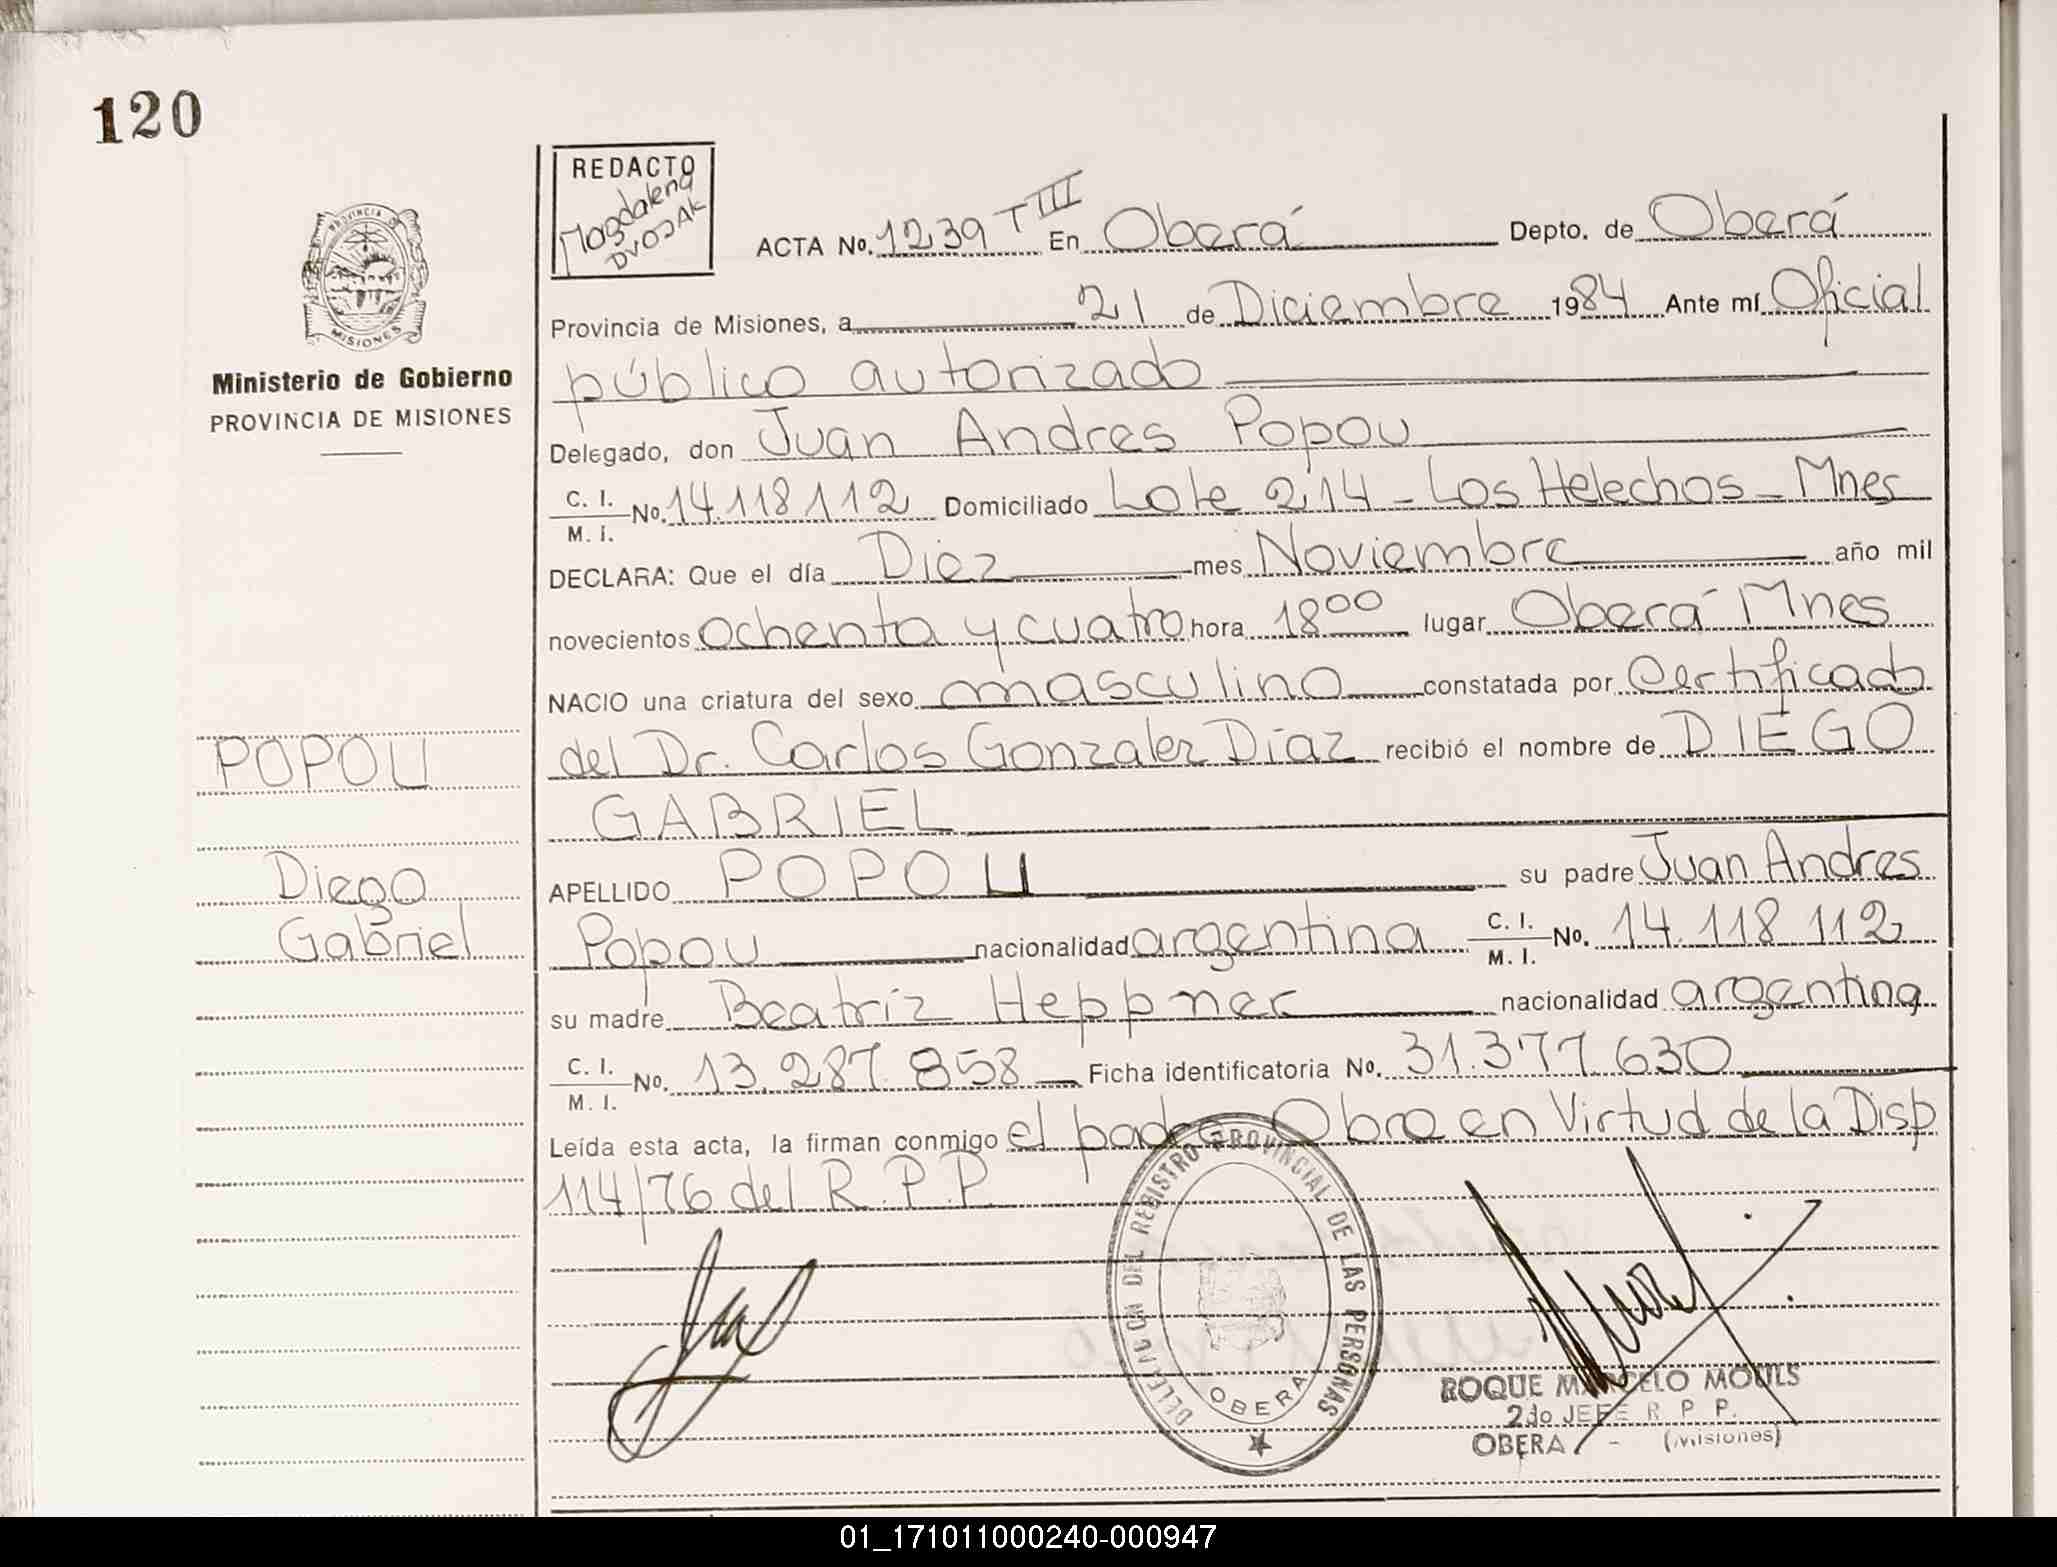 120
REDACTO
Magdalena
DVOJAK
PROVINCIA DE
MISIONES
Ministerio de Gobierno
PROVINCIA DE MISIONES
ACTA No. 1239 T III En Oberá Depto. de Oberá
Provincia de Misiones, a 21 de Diciembre 1984 Ante mí Oficial
público autorizado
Delegado, don Juan Andres Popou
C. I.
M. I. No. 14.118.112 Domiciliado Lote 214 - Los Helechos - Mnes
DECLARA: Que el día Diez mes Noviembre año mil
novecientos ochenta y cuatro hora 18 00 lugar Oberá Mnes
NACIO una criatura del sexo masculino constatada por Certificado
del Dr. Carlos Gonzalez Díaz recibió el nombre de DIEGO
GABRIEL
POPOU
Diego
Gabriel
APELLIDO POPOU su padre Juan Andres
Popou nacionalidad argentina C. I. M. I. No. 14.118.112
su madre Beatríz Heppner nacionalidad argentina
C. I.
M. I. No. 13.287.858 Ficha identificatoria No. 31.377.630
Leída esta acta, la firman conmigo el padre Obro en Virtud de la Disp
114/76 del R.P.P.
DELEGACION DEL REGISTRO PROVINCIAL DE LAS PERSONAS
OBERA
ROQUE MARCELO MOULS
2do JEFE R P P.
OBERA - (Misiones)
01_171011000240-000947